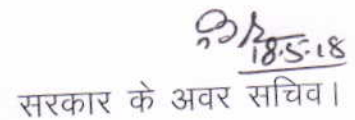 18.5.18
सरकार के अवर सचिव।